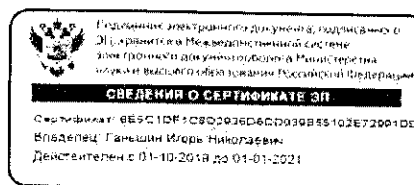 Подлинник электронного документа, подписанного
ЭП, хранится в Межведомственной системе
электронного документооборота Министерства
науки и высшего образования Российской Федерации
СВЕДЕНИЯ О СЕРТИФИКАТЕ ЭП
Сертификат:
Владелец: Ганьшин Игорь Николаевич
Действителен с 01-10-2019 до 01-01-2021